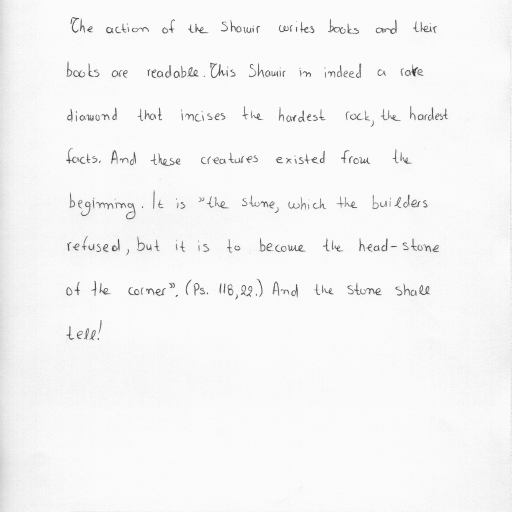 The action of the Shamir writes books and their
books are readable. This Shamir in indeed a rare
diamond that incises the hardest rock, the hardest
facts. And these creatures existed from the
beginning. It is "the stone, which the builders
refused, but it is to become the head-stone
of the corner". (Ps. 118,22.) And the stone shall
tell!